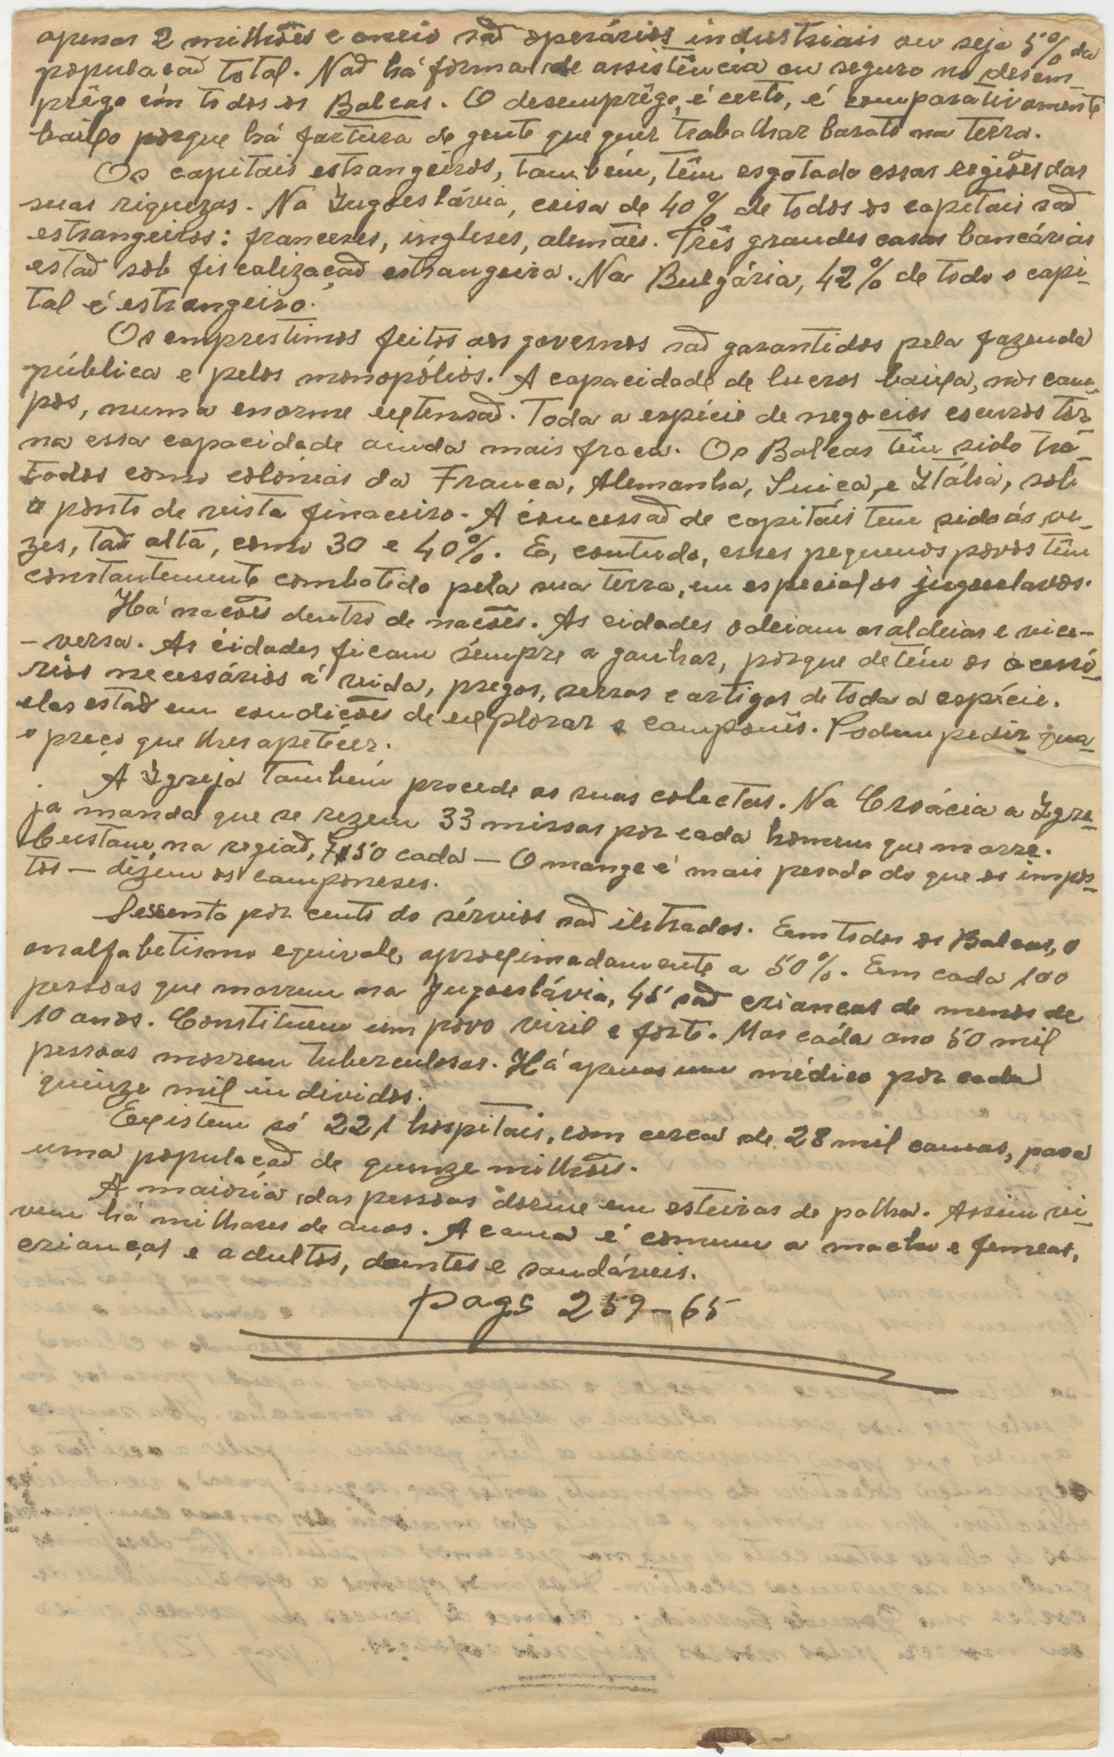 apenas 2 milhões e meio saõ operários industriais ou seja 5% da
populacaõ total. Naõ há forma de assistência ou seguro no desem-
prêgo em todos os Balcas. O desemprêgo, é certo, é comparativamente
baixo porque há fartura de gente que quer trabalhar barato na terra.
Os capitais estrangeiros, também, têm esgotado essas regiões das
suas riquezas. Na Jugoeslávia, coisa de 40% de todos os capitais saõ
estrangeiros: franceses, ingleses, alemães. Três grandes casas bancárias
estaõ sob fiscalizacaõ estrangeira. Na Bulgária, 42% de todo o capi-
tal é estrangeiro.
Os emprestimos feitos aos governos saõ garantidos pela fazenda
pública e pelos monopólios. A capacidade de lucros baixa, nos cam-
pos, numa enorme extensaõ. Toda a espécie de negocios escuros tor-
na essa capacidade ainda mais fraca. Os Balcas têm sido tra-
tados como colonias da Franca, Alemanha, Suica, e Itália, sob
o ponto de vista finaceiro. A concessaõ de capitais tem sido ás ve-
zes, taõ alta, como 30 e 40%. E, contudo, esses pequenos povos têm
constantemente combatido pela sua terra, em especial os jugoeslavos.
Há nacões dentro de nacões. As cidades odeiam as aldeias e vice-
-versa. As cidades ficam sempre a ganhar, porque detêm os acessó-
rios necessários á vida, pregos, serras e artigos de toda a espécie.
elas estaõ em condições de explorar o camponês. Podem pedir
o preço que lhes apetecer.
A Igreja também procede as suas colectas. Na Croácia a Igre-
ja manda que se rezem 33 missas por cada homem que morre.
Custam, na regiaõ, 7$50 cada — O monge é mais pesado do que os impos-
tos — dizem os camponeses.
Sessenta por cento do sérvios saõ iletrados. Em todos os Balcas, o
analfabetismo equivale, aproximadamente a 50%. Em cada 100
pessoas que morrem na Jugoeslávia, 45 saõ criancas de menos de
10 anos. Constituem um povo viril e forte. Mas cada ano 50 mil
pessoas morrem tuberculosas. Há apenas um médico por cada
quinze mil individos.
Existem só 221 hospitais, com cerca de 28 mil camas, para
uma populacaõ de quinze milhões.
A maioria das pessoas dorme em esteiras de palha. Assim vi-
vem há milhares de anos. A cama é comum a macho e femeas,
crianças e adultos, doentes e saudáveis.
pags 259-65